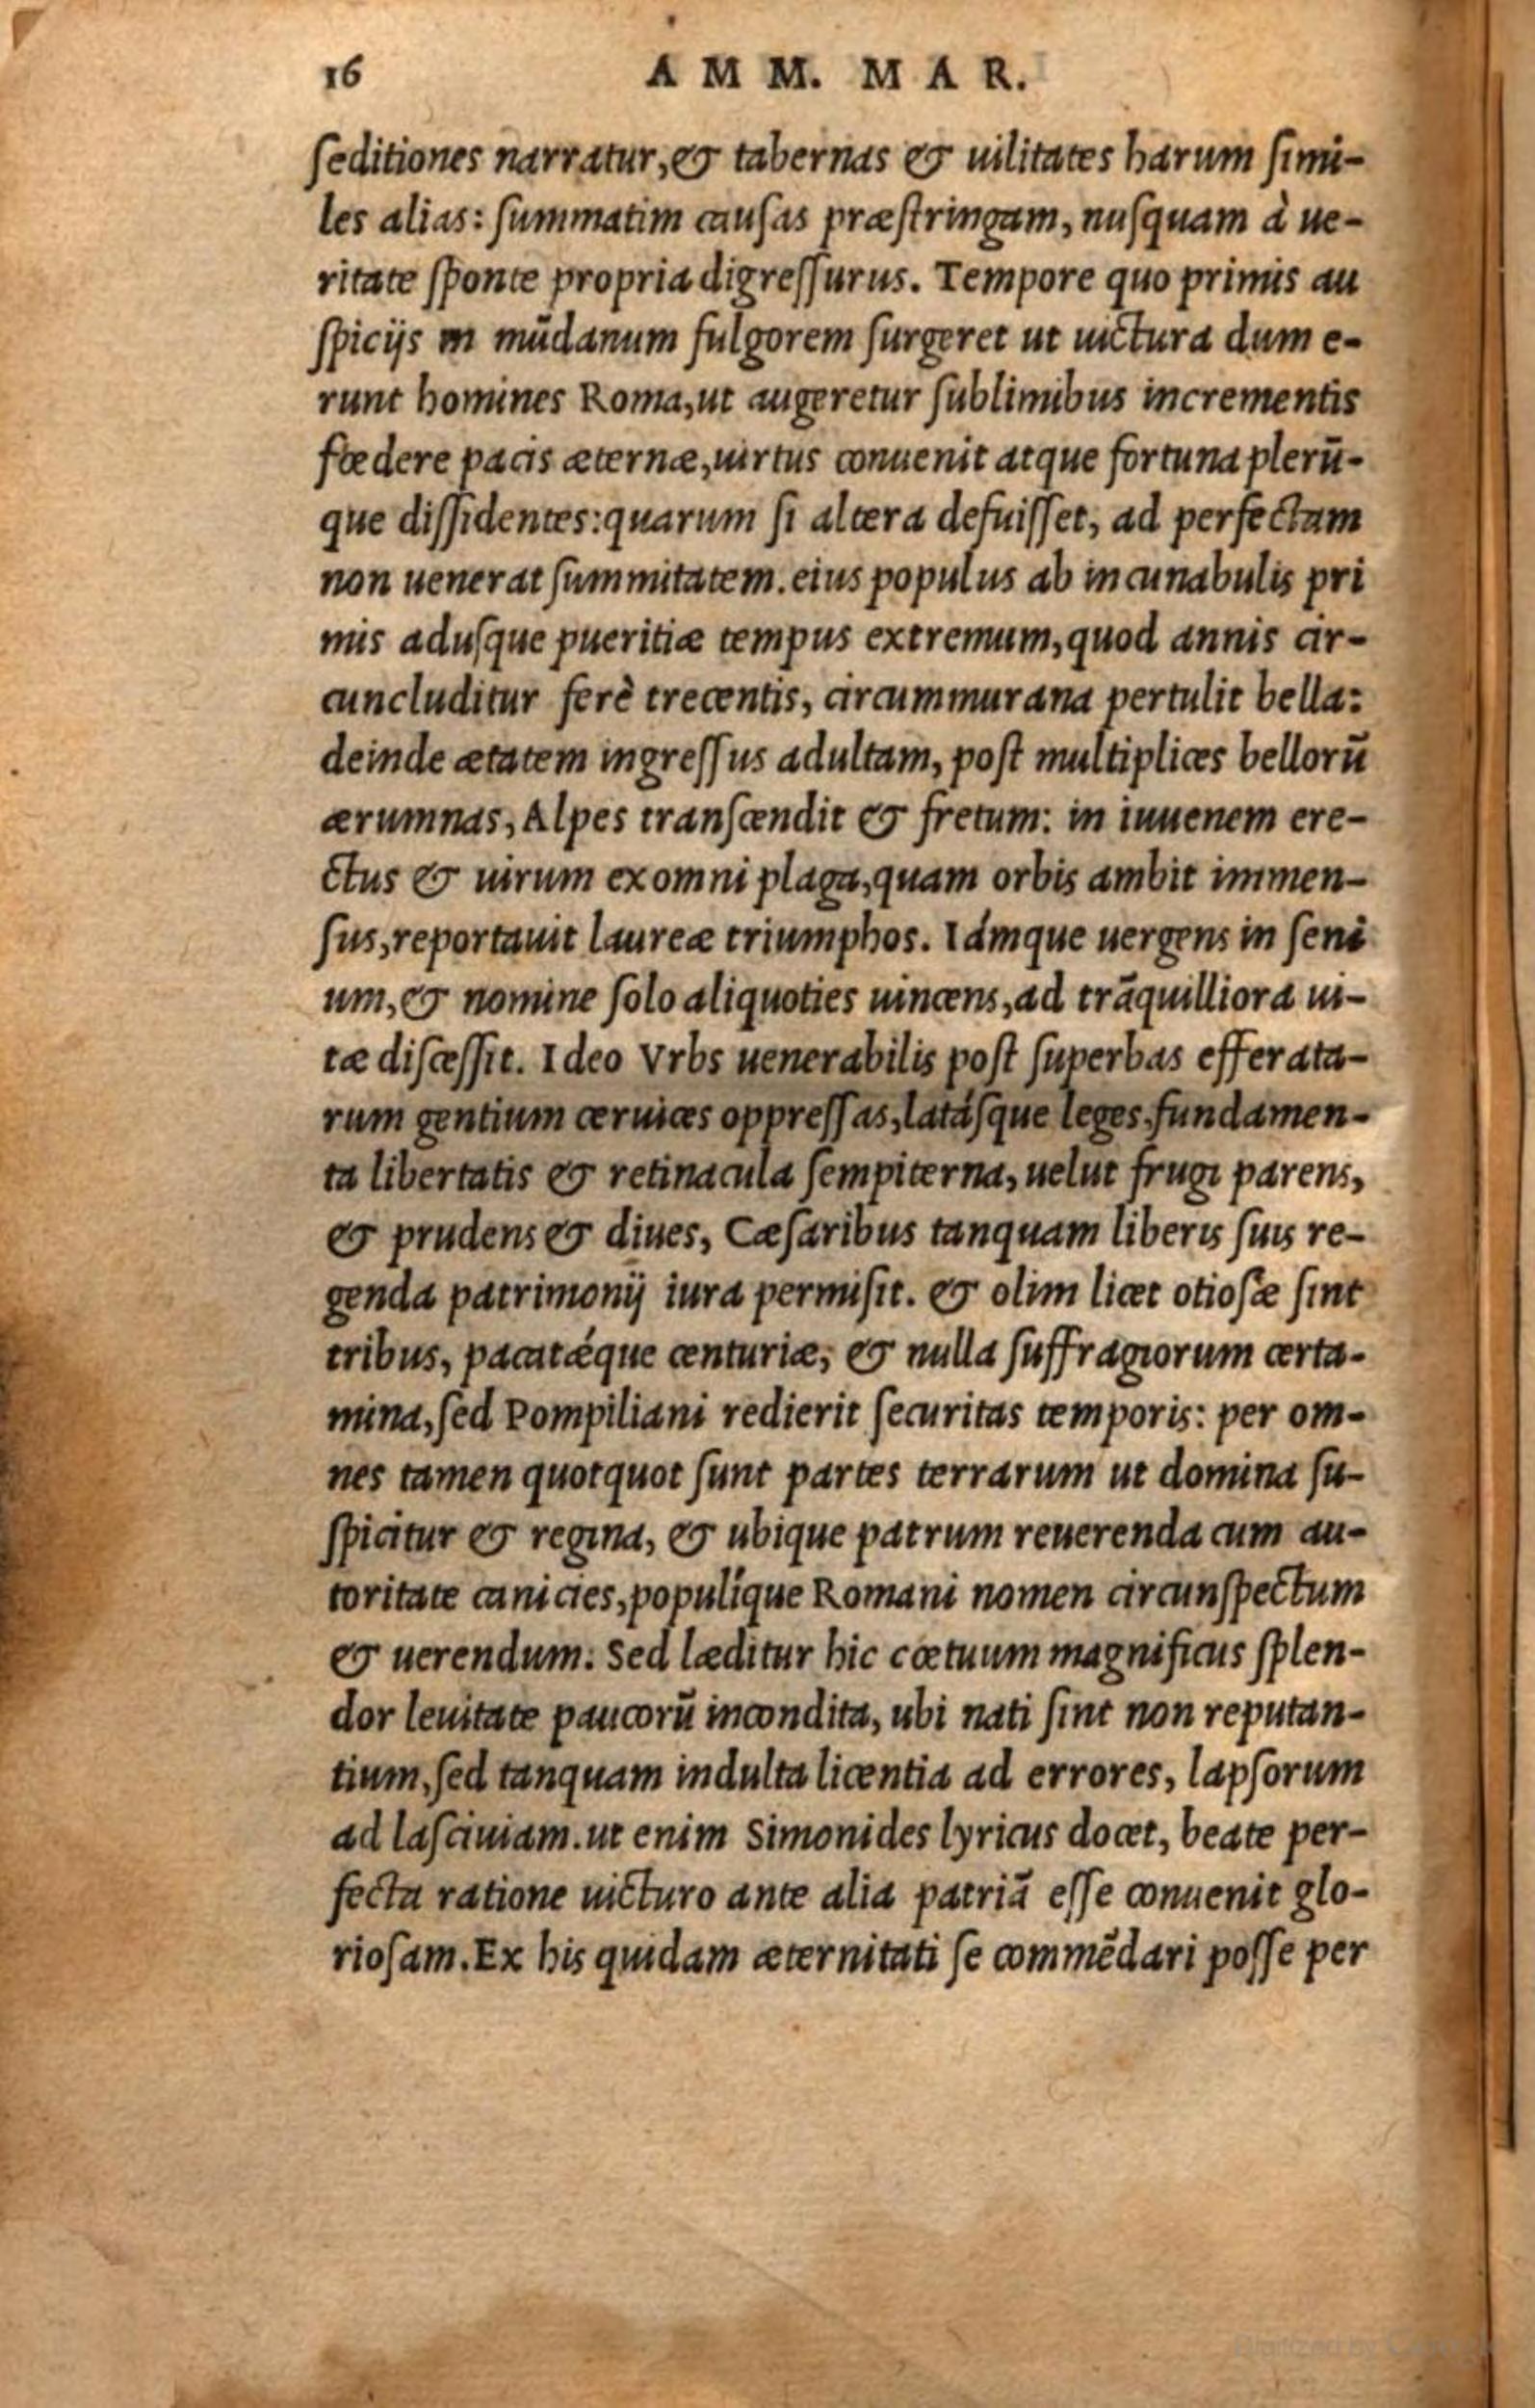 16 AMM. MAR.
ſeditiones narratur, & tabernas & uilitates harum ſimi-
les alias: ſummatim cauſas præſtringam, nuſquam à ue-
ritate ſponte propria digreſſurus. Tempore quo primis au
ſpicijs in mūdanum fulgorem ſurgeret ut uictura dum e-
runt homines Roma, ut augeretur ſublimibus incrementis
fœdere pacis æternæ, uirtus conuenit atque fortuna plerū-
que diſſidentes: quarum ſi altera defuiſſet, ad perfectam
non uenerat ſummitatem. eius populus ab incunabulis pri
mis aduſque pueritiæ tempus extremum, quod annis cir-
cuncluditur ferè trecentis, circummurana pertulit bella:
deinde ætatem ingreſſus adultam, poſt multiplices bellorū
ærumnas, Alpes tranſcendit & fretum: in iuuenem ere-
ctus & uirum ex omni plaga, quam orbis ambit immen-
ſus, reportauit laureæ triumphos. Iámque uergens in ſeni
um, & nomine ſolo aliquoties uincens, ad trāquilliora ui-
tæ diſceſſit. Ideo Vrbs uenerabilis poſt ſuperbas efferata-
rum gentium ceruices oppreſſas, latáſque leges, fundamen-
ta libertatis & retinacula ſempiterna, uelut frugi parens,
& prudens & diues, Cæſaribus tanquam liberis ſuis re-
genda patrimonij iura permiſit. & olim licet otioſæ ſint
tribus, pacatǽque centuriæ, & nulla ſuffragiorum certa-
mina, ſed Pompiliani redierit ſecuritas temporis: per om-
nes tamen quotquot ſunt partes terrarum ut domina ſu-
ſpicitur & regina, & ubique patrum reuerenda cum au-
toritate canicies, populíque Romani nomen circunſpectum
& uerendum. Sed læditur hic cœtuum magnificus ſplen-
dor leuitate paucorū incondita, ubi nati ſint non reputan-
tium, ſed tanquam indulta licentia ad errores, lapſorum
ad laſciuiam. ut enim Simonides lyricus docet, beate per-
fecta ratione uicturo ante alia patriā eſſe conuenit glo-
rioſam. Ex his quidam æternitati ſe commēdari poſſe per